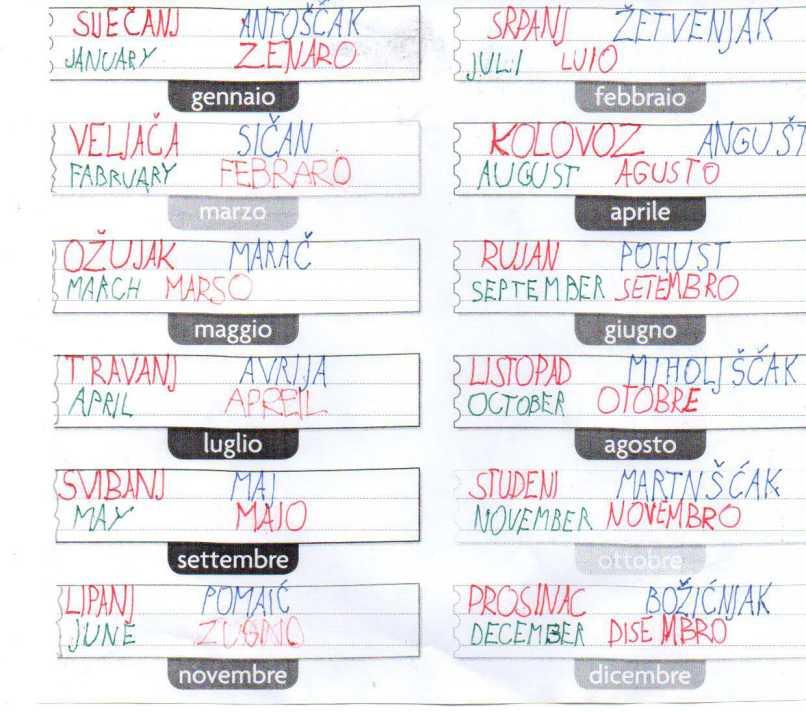 SIJEČANJ ANTOŠČAK
JANUARY ZENARO
gennaio
VELJAČA SIČAN
FABRUARY FEBRARO
marzo
OŽUJAK MARAČ
MARCH MARSO
maggio
TRAVANJ AVRIJA
APRIL APREIL
luglio
SVIBANJ MAJ
MAY MAJO
settembre
LIPANJ POMAIĆ
JUNE
novembre
SRPANJ ŽETVENJAK
JULI LUIO
febbraio
KOLOVOZ ANGUŠT
AUGUST AGUSTO
aprile
RUJAN POHUST
SEPTEMBER SETEMBRO
giugno
LISTOPAD MIHOLJŠČAK
OCTOBER OTOBRE
agosto
STUDENI MARTNŠĆAK
NOVEMBER NOVEMBRO
ottobre
PROSINAC BOŽIĆNJAK
DECEMBER DISEMBRO
dicembre